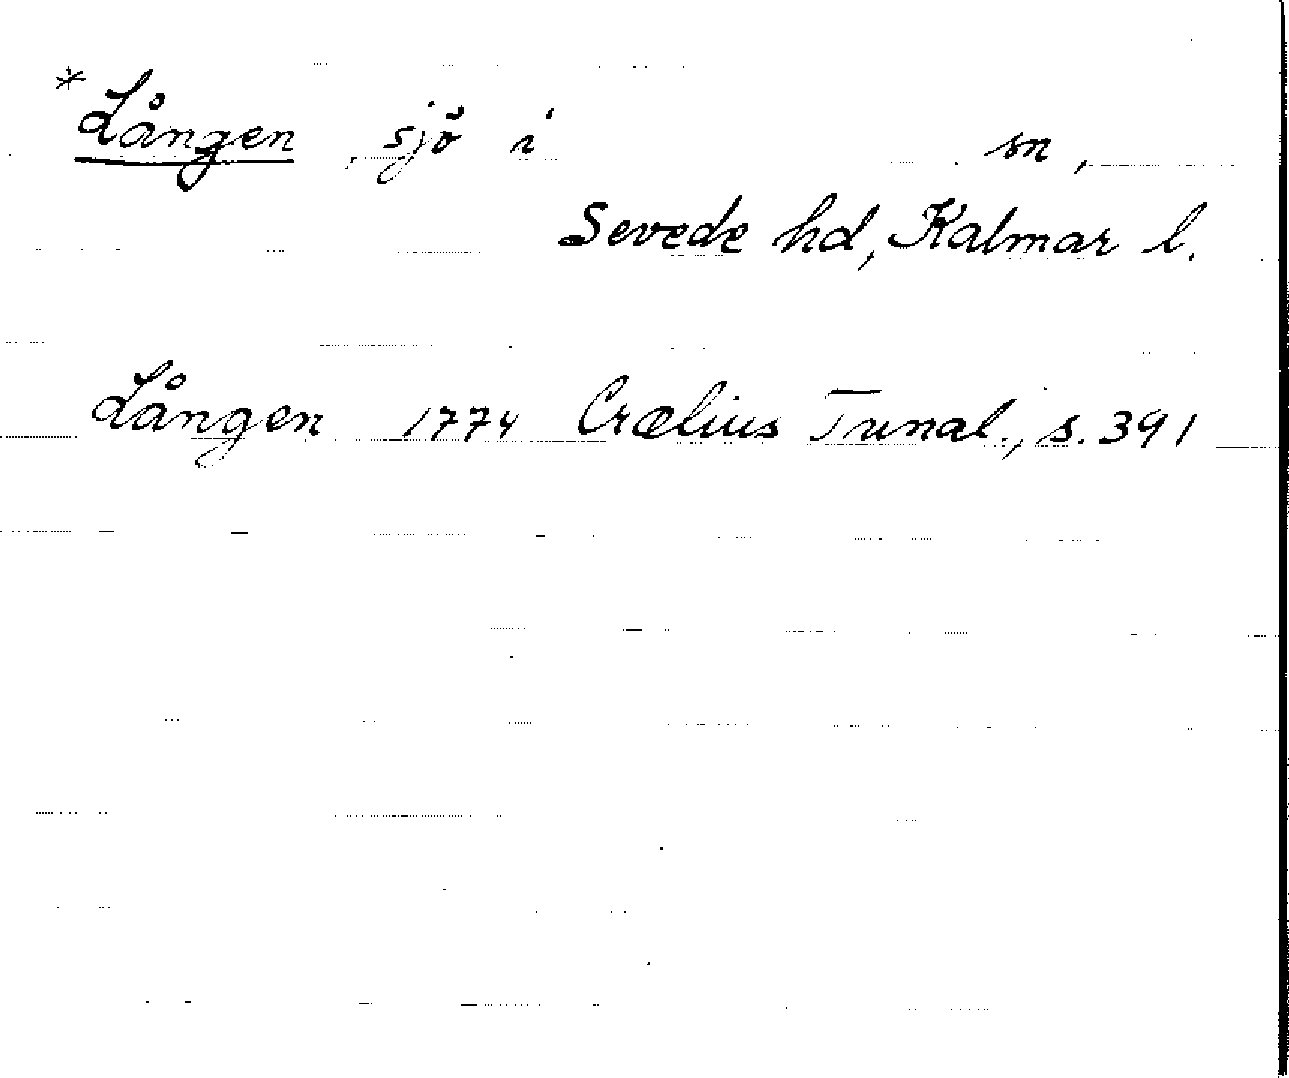 *Lången sjö i sn,
Sevede hd, Kalmar l.
Lången 1774 Crælius Tunal., s. 391